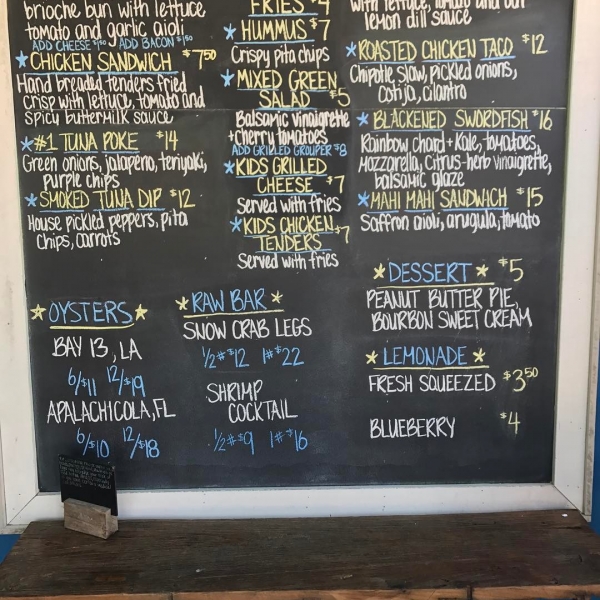 brioche bun with lettuce
tomato and garlic aioli
ADD CHEESE $1.50 ADD BACON $1.50
CHICKEN SANDWICH $7.50
Hand breaded tenders fried
crisp with lettuce, tomato and
spicy buttermilk sauce
#1 TUNA POKE $14
Green onions, jalapeño, teriyaki,
purple chips
SMOKED TUNA DIP $12
House pickled peppers, pita
chips, carrots
OYSTERS
BAY 13, LA
6/$11 12/$19
APALACHICOLA, FL
6/$10 12/$18
FRIES $4
HUMMUS $7
Crispy pita chips
MIXED GREEN
SALAD $5
Balsamic vinaigrette
+cherry tomatoes
ADD GRILLED GROUPER $8
KIDS GRILLED
CHEESE $7
Served with fries
KIDS CHICKEN
TENDERS $7
Served with fries
RAW BAR
SNOW CRAB LEGS
1/2# $12 1# $22
SHRIMP
COCKTAIL
1/2# $9 1# $16
with lettuce, tomato and
lemon dill sauce
ROASTED CHICKEN TACO $12
Chipotle slaw, pickled onions,
cotija, cilantro
BLACKENED SWORDFISH $16
Rainbow chard + Kale, tomatoes,
mozzarella, citrus-herb vinaigrette,
balsamic glaze
MAHI MAHI SANDWICH $15
Saffron aioli, arugula, tomato
DESSERT $5
PEANUT BUTTER PIE,
BOURBON SWEET CREAM
LEMONADE
FRESH SQUEEZED $3.50
BLUEBERRY $4